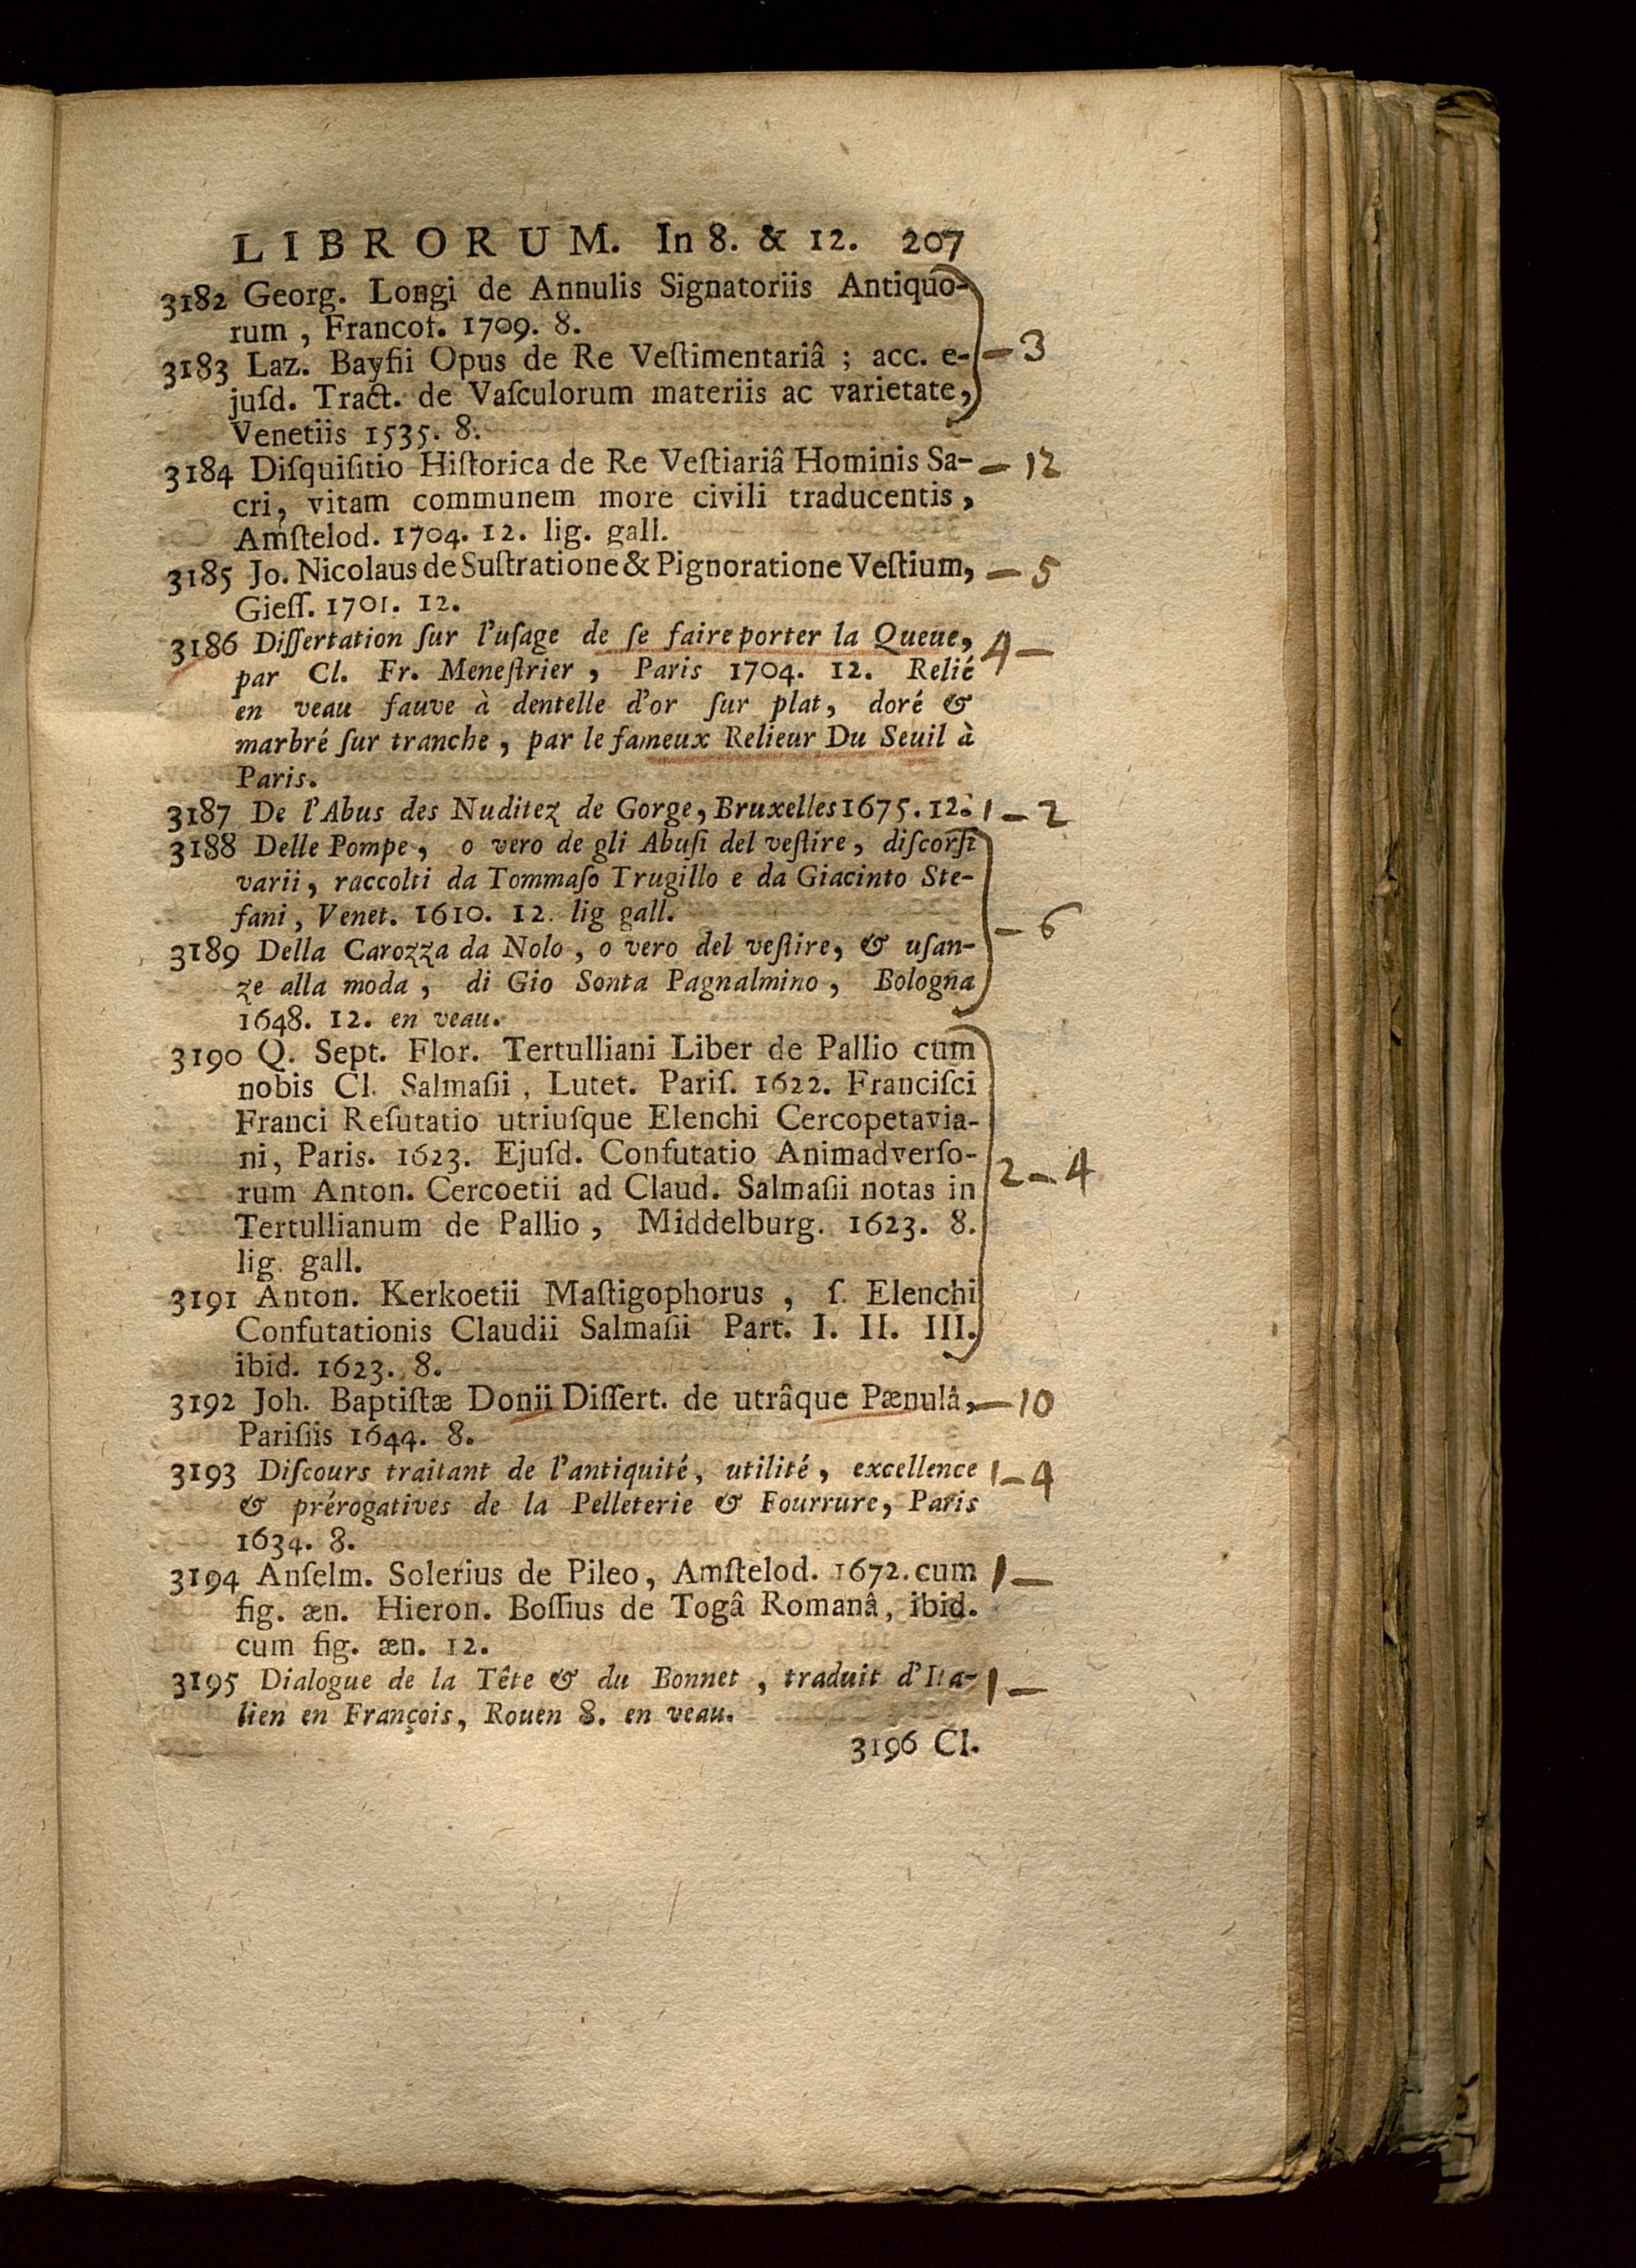 LIBRORUM. In 8. & 12. 207
3182 Georg. Longi de Annulis Signatoriis Antiquo-
rum, Francof. 1709. 8.
3183 Laz. Bayfii Opus de Re Veſtimentariâ; acc. e- — 3
juſd. Tract. de Vaſculorum materiis ac varietate,
Venetiis 1535. 8.
3184 Diſquiſitio Hiſtorica de Re Veſtiariâ Hominis Sa- — 12
cri, vitam communem more civili traducentis,
Amſtelod. 1704. 12. lig. gall.
3185 Jo. Nicolaus de Suſtratione & Pignoratione Veſtium, — 5
Gieſſ. 1701. 12.
3186 Diſſertation ſur l'uſage de ſe faire porter la Queue, 4 —
par Cl. Fr. Meneſtrier, Paris 1704. 12. Relié
en veau fauve à dentelle d'or ſur plat, doré &
marbré ſur tranche, par le fameux Relieur Du Seuil à
Paris.
3187 De l'Abus des Nuditez de Gorge, Bruxelles 1675. 12. 1 — 2
3188 Delle Pompe, o vero de gli Abuſi del veſtire, diſcorſi
varii, raccolti da Tommaſo Trugillo e da Giacinto Ste-
fani, Venet. 1610. 12. lig gall. — 6
3189 Della Carozza da Nolo, o vero del veſtire, & uſan-
ze alla moda, di Gio Sonta Pagnalmino, Bologna
1648. 12. en veau.
3190 Q. Sept. Flor. Tertulliani Liber de Pallio cum
nobis Cl. Salmaſii, Lutet. Pariſ. 1622. Franciſci
Franci Reſutatio utriuſque Elenchi Cercopetavia-
ni, Paris. 1623. Ejuſd. Confutatio Animadverſo-
rum Anton. Cercoetii ad Claud. Salmaſii notas in 2 — 4
Tertullianum de Pallio, Middelburg. 1623. 8.
lig. gall.
3191 Anton. Kerkoetii Maſtigophorus, ſ. Elenchi
Confutationis Claudii Salmaſii Part. I. II. III.
ibid. 1623. 8.
3192 Joh. Baptiſtæ Donii Diſſert. de utrâque Pænulâ, — 10
Pariſiis 1644. 8.
3193 Diſcours traitant de l'antiquité, utilité, excellence 1 — 4
& prérogatives de la Pelleterie & Fourrure, Paris
1634. 8.
3194 Anſelm. Solerius de Pileo, Amſtelod. 1672. cum 1 —
fig. æn. Hieron. Boſſius de Togâ Romanâ, ibid.
cum fig. æn. 12.
3195 Dialogue de la Tête & du Bonnet, traduit d'Ita- 1 —
lien en François, Rouen 8. en veau.
3196 Cl.